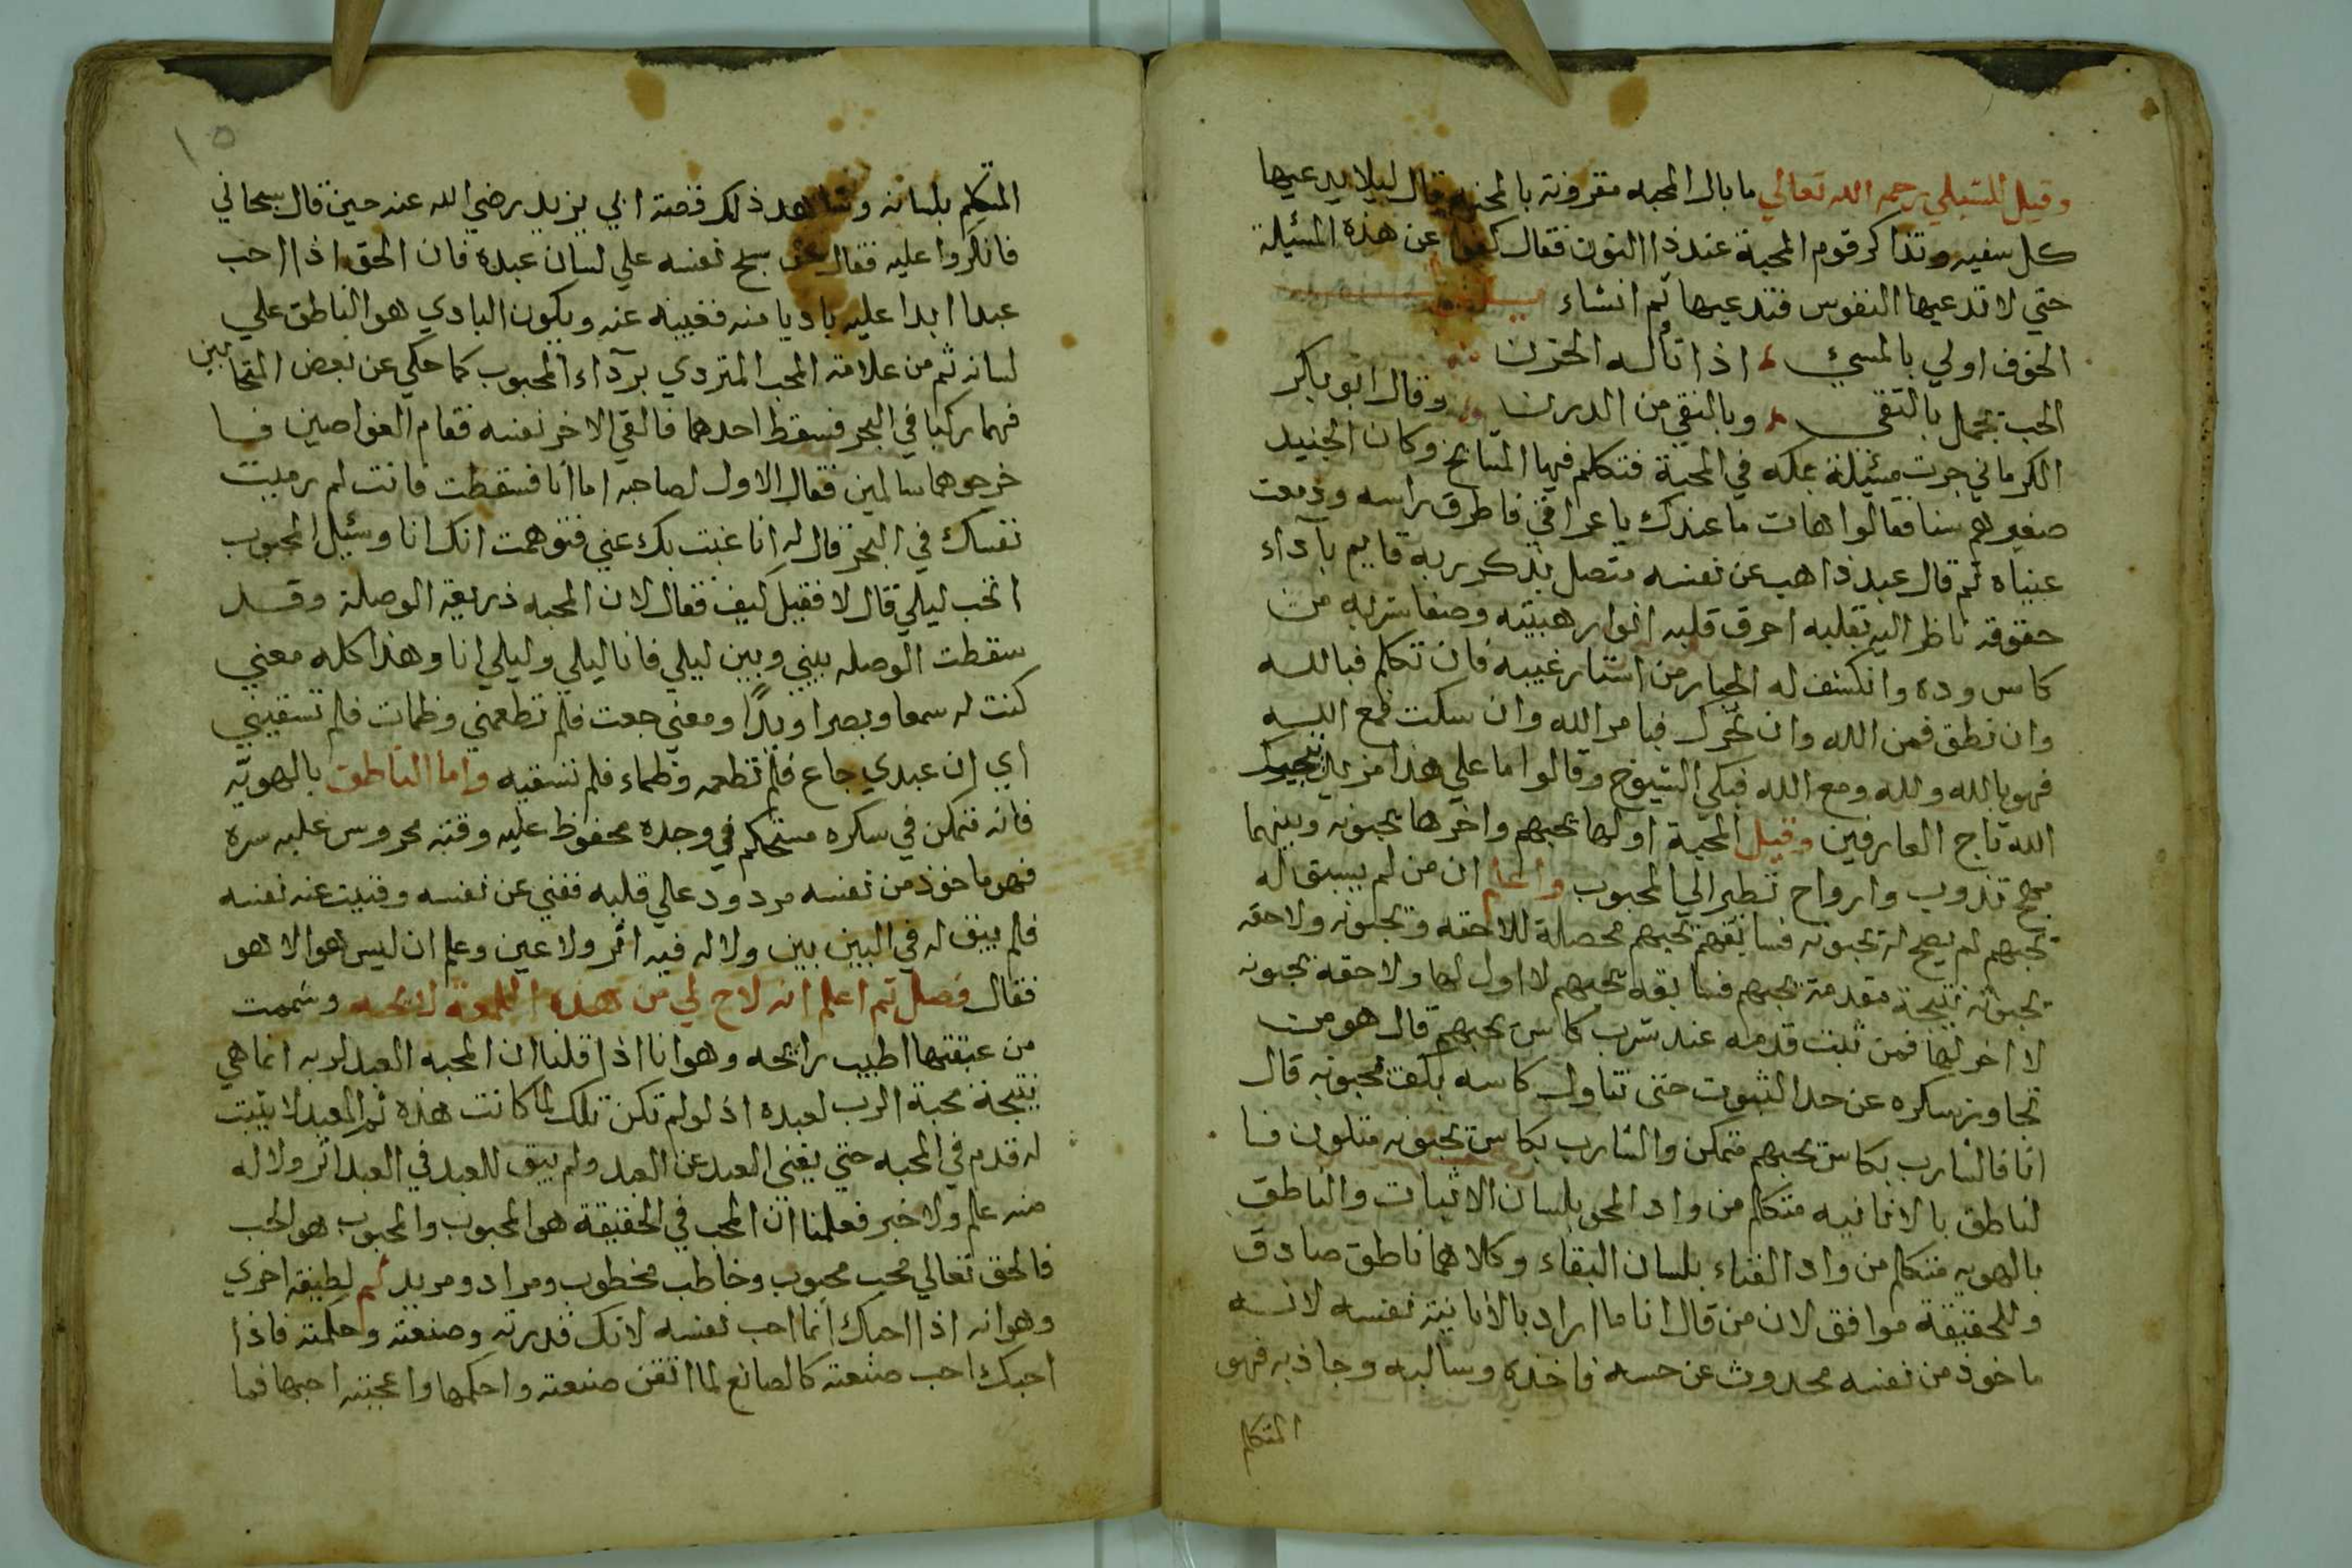 وقيل للشبلي رحمه الله تعالي ما بال المحبه مقرونة بالمحنه قال ليلا يدعيها
كل سفيه وتذاكر قوم المحبة عند ذا النون فقال كفوا عن هذه المسئلة
حتي لا تدعيها النفوس فتدعيها ثم انشاء
الخوف اولي بالمسئ اذا تأله الحزن
الحب تجمل بالتقى وبالنقي من الدرن وقال ابو باكر
الكرماني جرت مسئيلة بمكه في المحبة فتكلم فيها المشايخ وكان الجنيد
صغيرهم سنا فقالوا هات ما عندك يا عراقي فاطرق راسه ودمعت
عيناه ثم قال عبد ذاهب عن نفسه متصل بذكر ربه قايم بآداء
حقوقه ناظر اليه بقلبه احرق قلبه انوار هيبته وصفا شربه من
كاس وده وانكشف له الجبار من استار غيبه فان تكلم فبالله
وان نطق فمن الله وان تحرك فبامر الله وان سكت فمع الله
فهو بالله ولله ومع الله فبكي الشيوخ وقالوا ما علي هذا مزيد
الله تاج العارفين وقيل المحبة اولها يحبهم واخرها يحبونه وبينهما
مهج تذوب وارواح تطير الي المحبوب واعلم ان من لم يسبق له
يحبهم لم يصح له يحبونه فسابقهم يحبهم محصلة للاحقه ويحبونه ولاحقه
يحبونه نتيجة مقدمة يحبهم فسابقه يحبهم لا اول لها ولاحقه يحبونه
لا اخر لها فمن ثبت قدمه عند شرب كاس يحبهم قال هو من
تجاوز سكره عن حد الثبوت حتى تناول كاسه بكف يحبونه قال
انا فالشارب بكاس يحبهم متمكن والشارب بكاس يحبونه متلون فا
لناطق بالانانيه متكلم من واد المحو بلسان الاثبات والناطق
بالهويه متكلم من واد الفناء بلسان البقاء وكلاهما ناطق صادق
وللحقيقة موافق لان من قال انا ما اراد بالانانية نفسه لانه
ماخوذ من نفسه محدوث عن حسه فاخذه وسالبه وجاذبه فهو
المتكلم
١٥
المتكلم بلسانه وشاهد ذلك قصة ابي يزيد رضي الله عنه حين قال سبحاني
فانكروا عليه فقال سبح نفسه علي لسان عبده فان الحق اذا احب
عبدا ابدا عليه باديا منه فغيبه عنه ويكون البادي هو الناطق علي
لسانه ثم من علامة المحب المتردي برآداء المحبوب كما حكي عن بعض المتحابين
فهما ركبا في البحر فسقط احدهما فالقي الاخر نفسه فقام الغواصين فا
خرجوهما سالمين فقال الاول لصاحبه اما انا فسقطت فانت لم رميت
نفسك في البحر قال له انا غبت بك عني فتوهمت انك انا وسئيل المحبوب
اتحب ليلي قال لا فقيل كيف فقال لان المحبه ذريعة الوصلة وقد
سقطت الوصله بيني وبين ليلي فانا ليلي وليلي انا وهذا كله معني
كنت له سمعا وبصرا ويدًا ومعني جعت فلم تطعمني وظمات فلم تسقيني
اي ان عبدي جاع فلم تطعمه وظماء فلم تسقيه واما الناطق بالهويّه
فانه متمكن في سكره مستحكم في وجده محفوظ عليه وقته محروس عليه سره
فهو ماخوذ من نفسه مردود عالي قلبه ففني عن نفسه وفنيت عنه نفسه
فلم يبق له في البين بين ولا له فيه اثر ولا عين وعلم ان ليس هو الا هو
فقال فصل ثم اعلم انه لاح لي من هذه اللمعة لايحه وشممت
من عبقتها اطيب رايحه وهو انا اذا قلنا ان المحبه العبد لربه انما هي
نتيجة محبة الرب لعبده اذ لو لم تكن تلك لما كانت هذه ثم العبد لا يثبت
له قدم في المحبه حتي يفني العبد عن العبد ولم يبق للعبد في العبد اثر ولا له
منه علم ولا خبر فعلمنا ان المحب في الحقيقة هو المحبوب والمحبوب هو الحب
فالحق تعالي محب محبوب وخاطب مخطوب ومراد ومريد ثم لطيفة اخري
وهو انه اذا احبك انما احب نفسه لانك قدرته وصنعته وحكمته فاذا
احبك احب صنعته كالصانع لما اتقن صنعته واحكمها واعجبته احبها فما